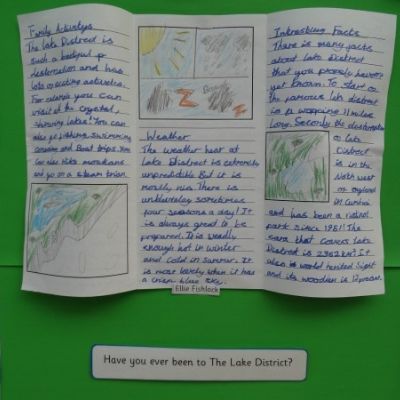 Family Activitys
The Lake District is
such a beutiful
desternation and has
lots of exciting activites.
For example you can
visit all the crystal,
shinning lakes! You can
also go fishing, swimming
canoeing and Boat trips. You
can also hike mountains
and go on a steam train.
Weather
The weather hear at
Lake District is extremely
unpredictible But it is
mostly nice. There is
undoubtedly sometimes
four seasons a day! It
is always great to be
prepared. It is usually
enough hot in winter
and cold in summer. It
is most lovely when it has
a crisp blue sky.
Ellie Fishlock
Intresting Facts
There is many facts
about Lake District
that you probaly haven't
yet known. To start of
the famous lake district
is a wopping 11 miles
long. Secondly the desternation
of lake
District
is in the
North west
of england
in Cumbria
and has been a national
park since 1951! The
area that covers Lake
District is 2362 km². It
also is world herited sight
and its woodlen is 12 percent.
Have you ever been to The Lake District?